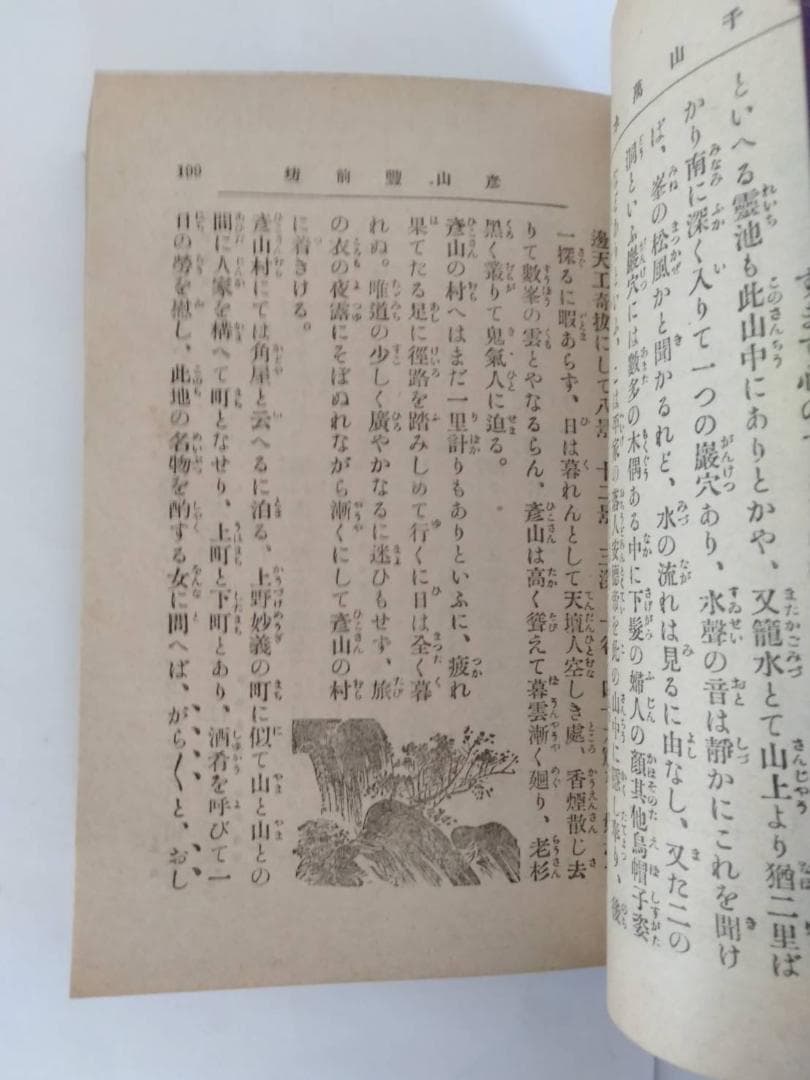 千山萬
といへる靈池も此山中にありとかや、又籠水とて山上より猶二里ば
かり南に深く入りて一つの巖穴あり、水聲の音は靜かにこれを聞け
ば、峯の松風かと聞かるれど、水の流れは見るに由なし、又た二の
洞といふ巖穴には數多の木偶ある中に下髮の婦人の顏其他烏帽子姿
彥山豐前坊
199
邊天工奇拔にして八景、十二景、三
一探るに暇あらず、日は暮れんとして天壇人空しき處、香煙散じ去
りて數峯の雲とやなるらん、彥山は高く聳えて暮雲漸く廻り、老杉
黑く叢りて鬼氣人に迫る。
彥山の村へはまだ一里計りもありといふに、疲れ
果てたる足に徑路を踏みしめて行くに日は全く暮
れぬ。唯道の少しく廣やかなるに迷ひもせず、旅
の衣の夜露にそぼぬれながら漸くにして彥山の村
に着きける。
彥山村にては角屋と云へるに泊る、上野妙義の町に似て山と山との
間に人家を構へて町となせり、上町と下町とあり、酒肴を呼びて一
日の勞を慰し、此地の名物を酌する女に問へば、がら〱と、おし